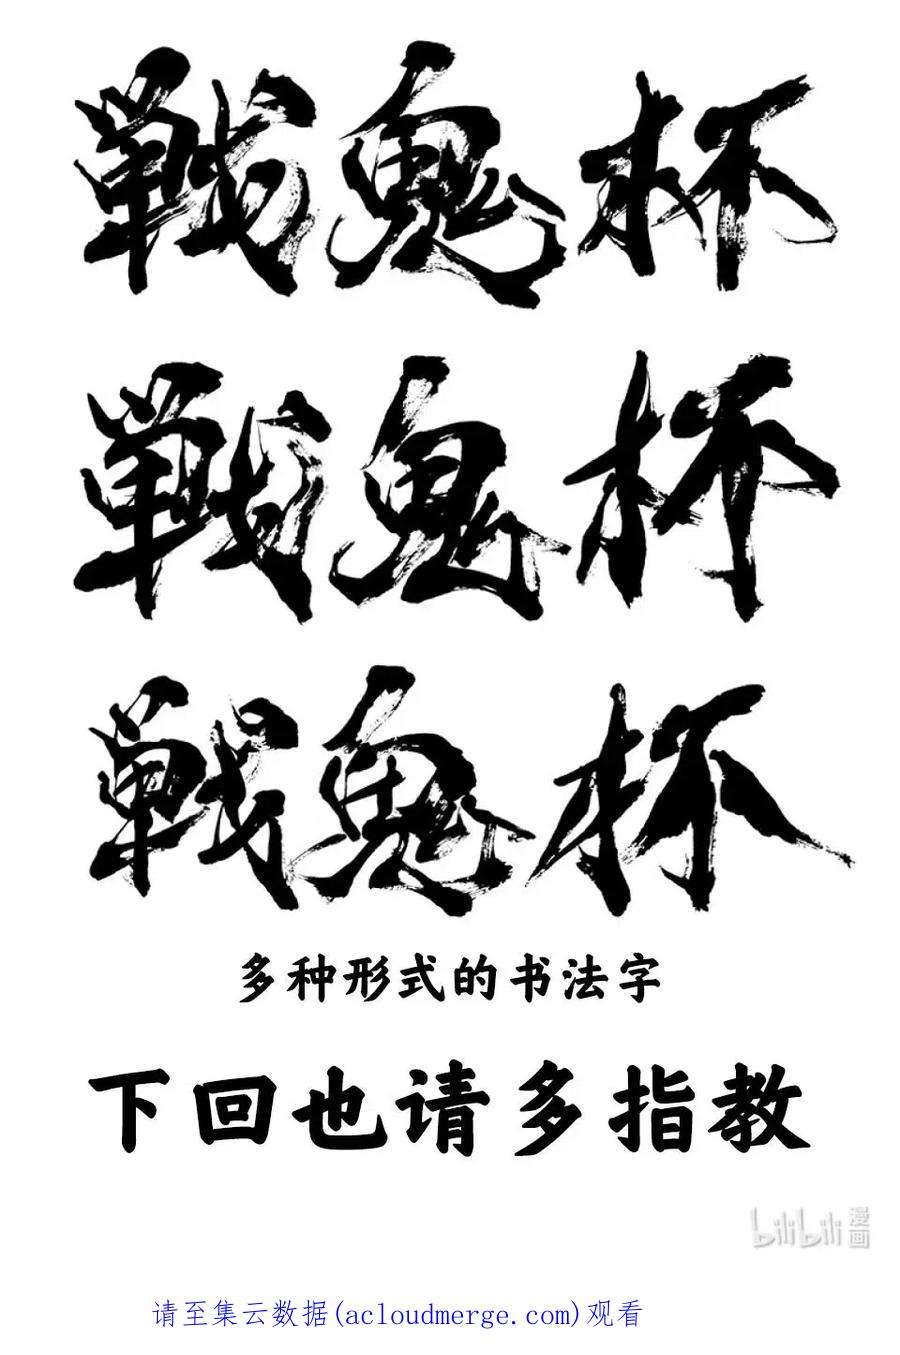 戦鬼杯
戦鬼杯
戦鬼杯
多种形式的书法字
下回也请多指教
bilibili 漫画
请至集云数据(acloudmerge.com)观看